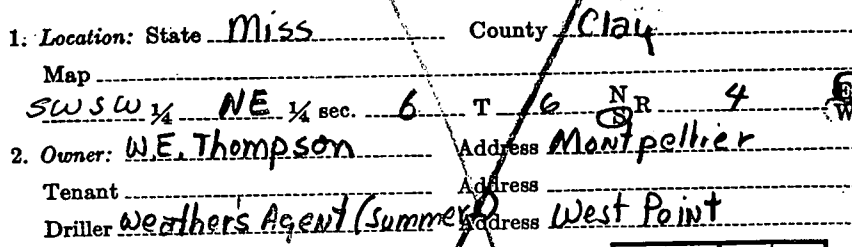 1. Location: State Miss County Clay
Map
SW SW ¼ NE ¼ sec. 6 T 16 N S R 4 E W
2. Owner: W.E. Thompson Address Montpellier
Tenant Address
Driller Weather's Agent (Summers) Address West Point